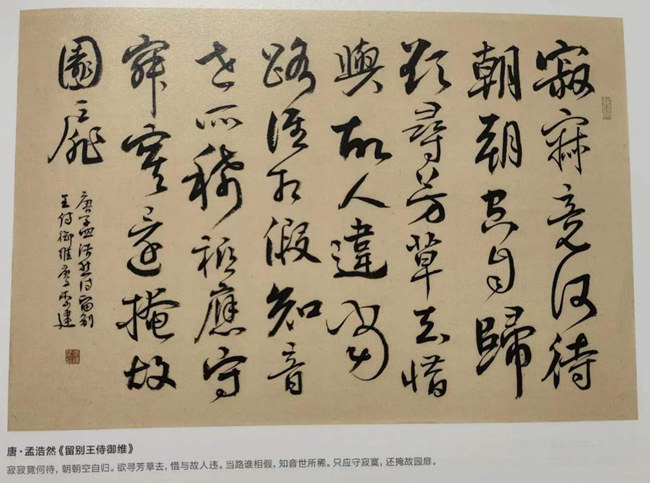 寂寂竟何待
朝朝空自歸
欲尋芳草去惜
與故人違當
路誰相假知音
世所稀祇應守
寂寞還掩故
園扉
唐孟浩然詩留別
王侍御維
唐·孟浩然《留别王侍御维》
寂寂竟何待，朝朝空自归。欲寻芳草去，惜与故人违。当路谁相假，知音世所稀。只应守寂寞，还掩故园扉。